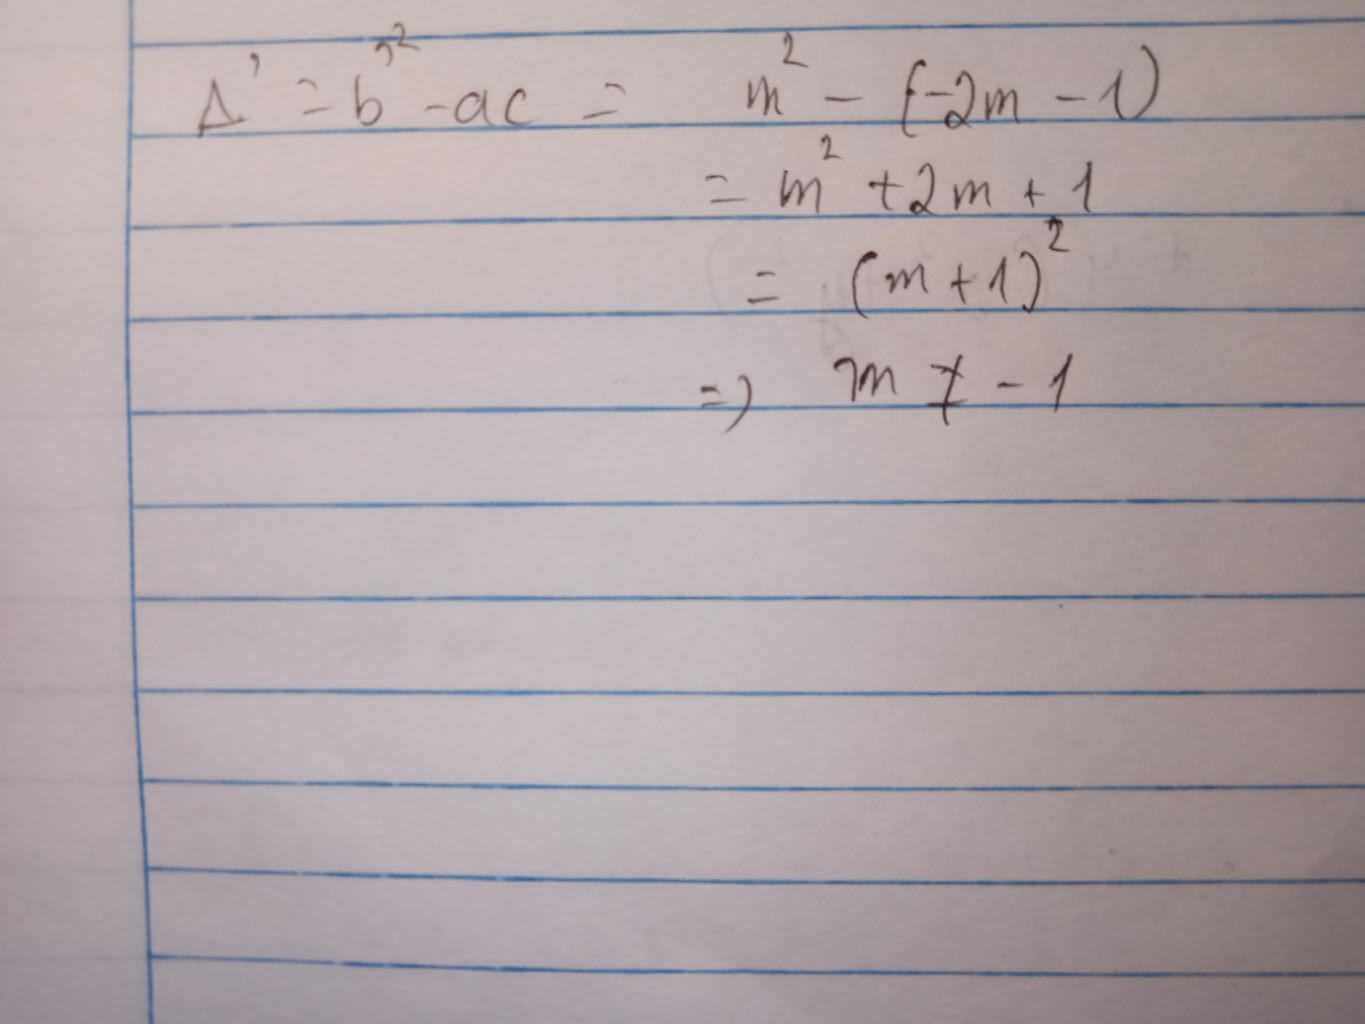 Δ' = b'² - ac = m² - (-2m - 1)
= m² + 2m + 1
= (m + 1)²
=> m ≠ -1